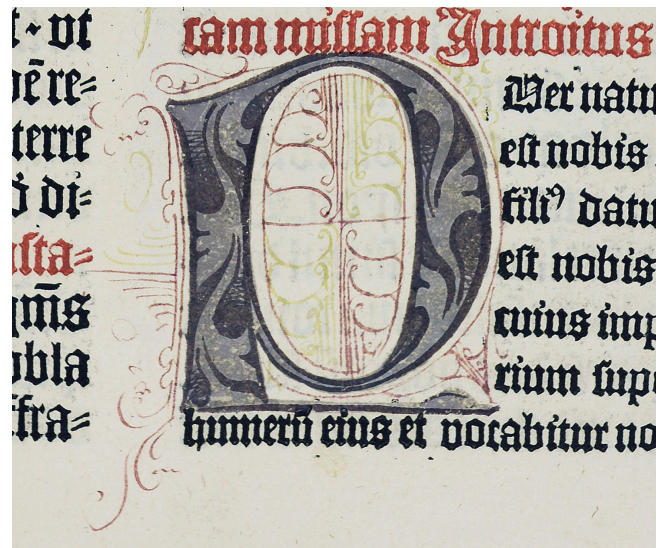 t · ut
re=
terre
di=
ſta=
obla
ffra=
cam miſſam Introitus
PUer natu
eſt nobis
filiꝰ datu
eſt nobis
cuius imp
rium ſup
humerū eius et vocabitur no